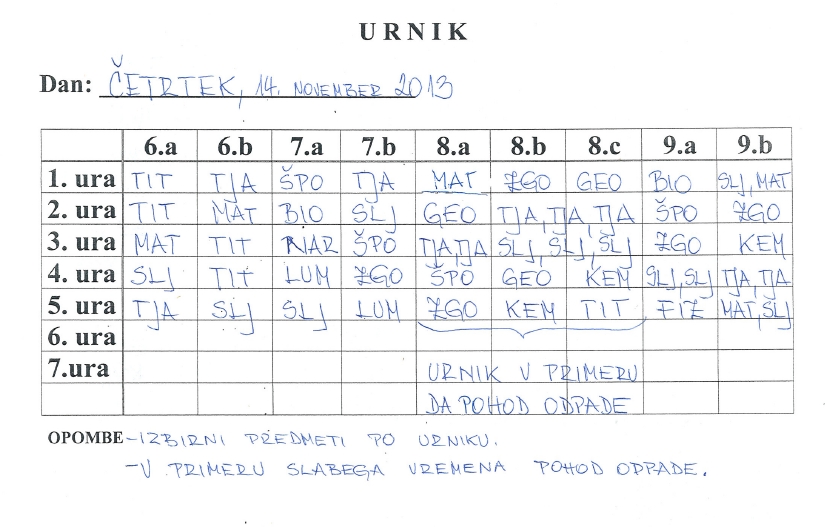 URNIK
Dan: ČETRTEK, 14. NOVEMBER 2013
6.a 6.b 7.a 7.b 8.a 8.b 8.c 9.a 9.b
1. ura TIT TJA ŠPO TJA MAT ZGO GEO BIO SLJ, MAT
2. ura TIT MAT BIO SLJ GEO TJA, TJA, TJA ŠPO ZGO
3. ura MAT TIT NAR ŠPO TJA, TJA SLJ, SLJ, SLJ ZGO KEM
4. ura SLJ TIT LUM ZGO ŠPO GEO KEM SLJ, SLJ TJA, TJA
5. ura TJA SLJ SLJ LUM ZGO KEM TIT FIZ MAT, SLJ
6. ura
7.ura URNIK V PRIMERU
DA POHOD ODPADE
OPOMBE -IZBIRNI PREDMETI PO URNIKU.
-V PRIMERU SLABEGA VREMENA POHOD ODPADE.